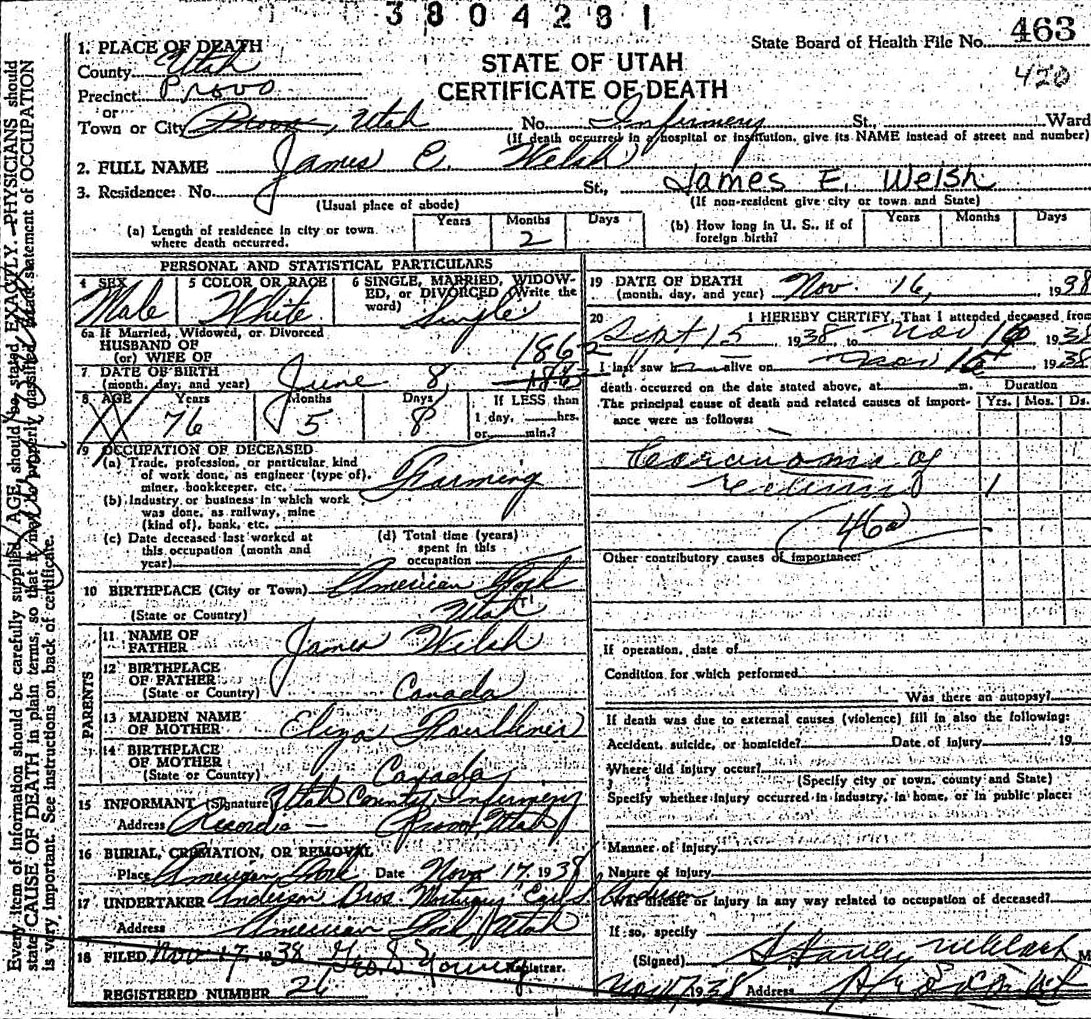 3804281
State Board of Health File No. 463
420
STATE OF UTAH
CERTIFICATE OF DEATH
1. PLACE OF DEATH
County Utah
Precinct Provo
or
Town or City Provo, Utah No. Infirmery St., Ward
(If death occurred in a hospital or institution, give its NAME instead of street and number)
2. FULL NAME James E. Welsh
3. Residence: No. St., James E. Welsh
(Usual place of abode) (If non-resident give city or town and State)
(a) Length of residence in city or town where death occurred. Years Months 2 Days
(b) How long in U. S., if of foreign birth? Years Months Days
PERSONAL AND STATISTICAL PARTICULARS
4 SEX Male
5 COLOR OR RACE White
6 SINGLE, MARRIED, WIDOWED, or DIVORCED (Write the word) Single
6a If Married, Widowed, or Divorced
HUSBAND OF
(or) WIFE OF
7 DATE OF BIRTH
(month, day, and year) June 8, 1862
8 AGE Years 76 Months 5 Days 8
If LESS than
1 day, hrs.
or min.?
9 OCCUPATION OF DECEASED
(a) Trade, profession, or particular kind
of work done, as engineer (type of),
miner, bookkeeper, etc. Farming
(b) Industry or business in which work
was done, as railway, mine
(kind of), bank, etc.
(c) Date deceased last worked at
this occupation (month and
year)
(d) Total time (years)
spent in this
occupation
10 BIRTHPLACE (City or Town) American Fork
(State or Country) Utah
PARENTS
11 NAME OF
FATHER James Welsh
12 BIRTHPLACE
OF FATHER
(State or Country) Canada
13 MAIDEN NAME
OF MOTHER Eliza
14 BIRTHPLACE
OF MOTHER
(State or Country) Canada
15 INFORMANT (Signature) Utah County Infirmery
Address Records - Provo, Utah
16 BURIAL, CREMATION, OR REMOVAL
Place American Fork Date Nov. 17, 1938
17 UNDERTAKER Anderson Bros. Mortuary Earl S. Anderson
Address American Fork, Utah
18 FILED Nov 17 1938 Registrar.
REGISTERED NUMBER 26
19 DATE OF DEATH
(month, day, and year) Nov. 16, 1938
20 I HEREBY CERTIFY, That I attended deceased from
Sept 15, 1938, to Nov 16, 1938
I last saw alive on Nov 16 1938
death occurred on the date stated above, at m.
Duration
The principal cause of death and related causes of importance were as follows: Yrs. Mos. Ds.
of
1
46a
Other contributory causes of importance:
If operation, date of
Condition for which performed
Was there an autopsy?
If death was due to external causes (violence) fill in also the following:
Accident, suicide, or homicide? Date of injury 19
Where did injury occur?
(Specify city or town, county and State)
Specify whether injury occurred in industry, in home, or in public place:
Manner of injury
Nature of injury
Was disease or injury in any way related to occupation of deceased?
If so, specify
(Signed) M
Nov 17 1938 Address
Every item of information should be carefully supplied. AGE should be stated EXACTLY. PHYSICIANS should
state CAUSE OF DEATH in plain terms, so that it may be properly classified. Exact statement of OCCUPATION
is very important. See instructions on back of certificate.